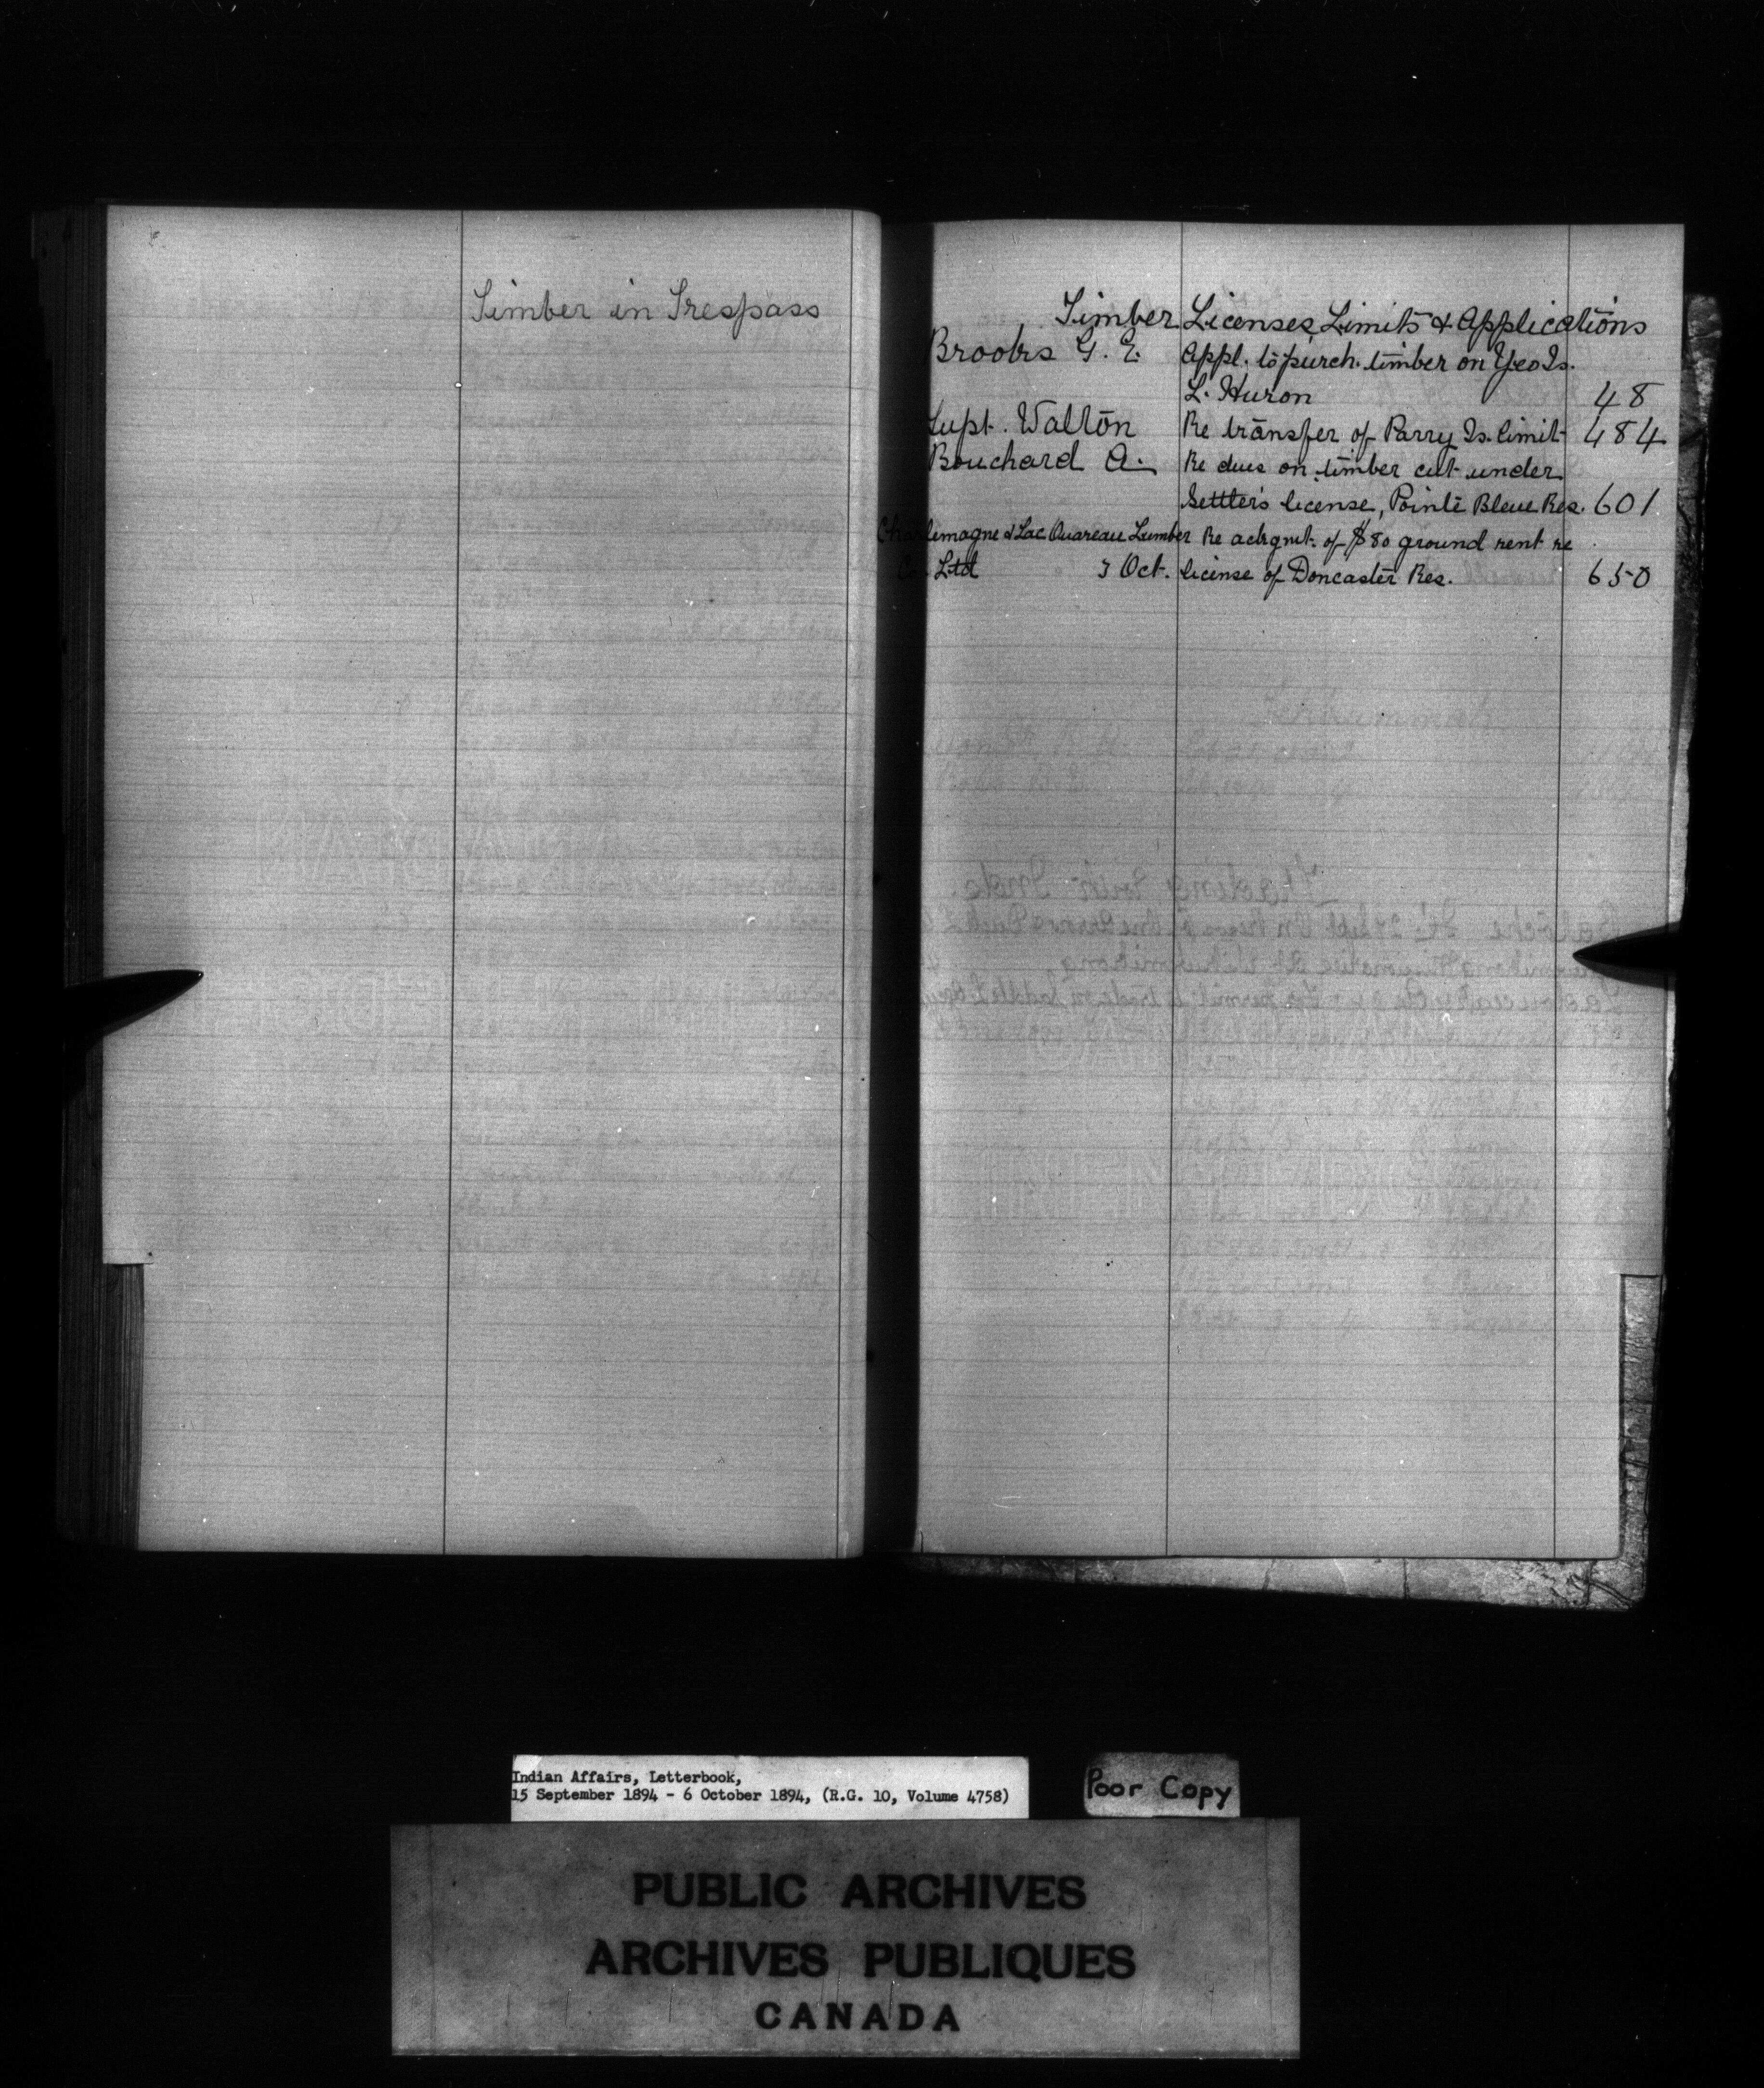 Timber in Trespass
Timber Licenses, Limits & Applications
Brooks G. E. Appl. to purch. timber on Yeo Is.
L. Huron 48
Supt. Walton Re transfer of Parry Is. limit 484
Bouchard A. Re dues on timber cut under
Settler's license, Pointe Bleue Res. 601
Charlemagne & Lac Ouareau Lumber Re ackgmt. of $80 ground rent re
Co. Ltd 3 Oct. license of Doncaster Res. 650
Indian Affairs, Letterbook,
15 September 1894 - 6 October 1894, (R.G. 10, Volume 4758)
Poor Copy
PUBLIC ARCHIVES
ARCHIVES PUBLIQUES
CANADA